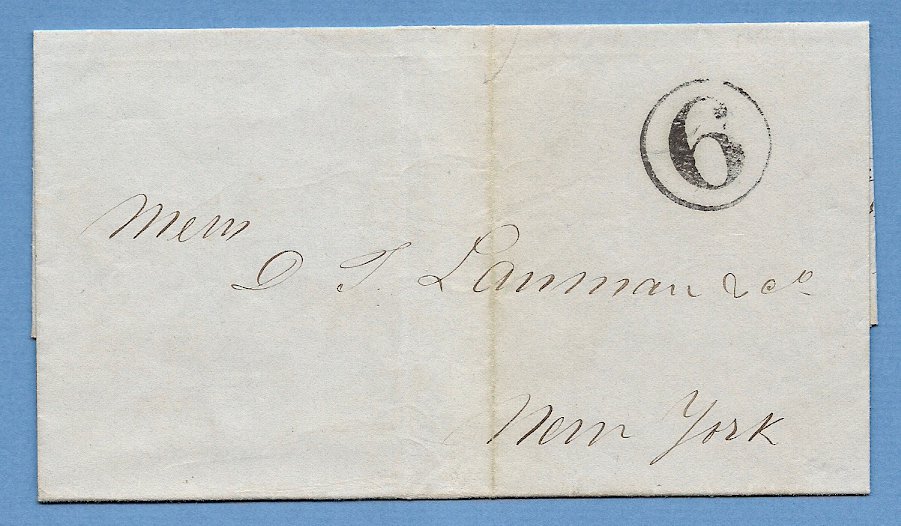 6
Mess
D T. Lanman & Co
New York